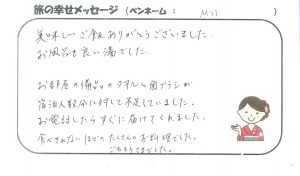 旅の幸せメッセージ（ペンネーム： M77 ）
美味しいご飯ありがとうございました。
お風呂も良い湯でした。
お部屋の備品のタオルと歯ブラシが
宿泊人数分に対して不足していました。
お電話したらすぐに届けてくれました。
食べきれないほどのたくさんのお料理でした。
ごちそうさまでした。